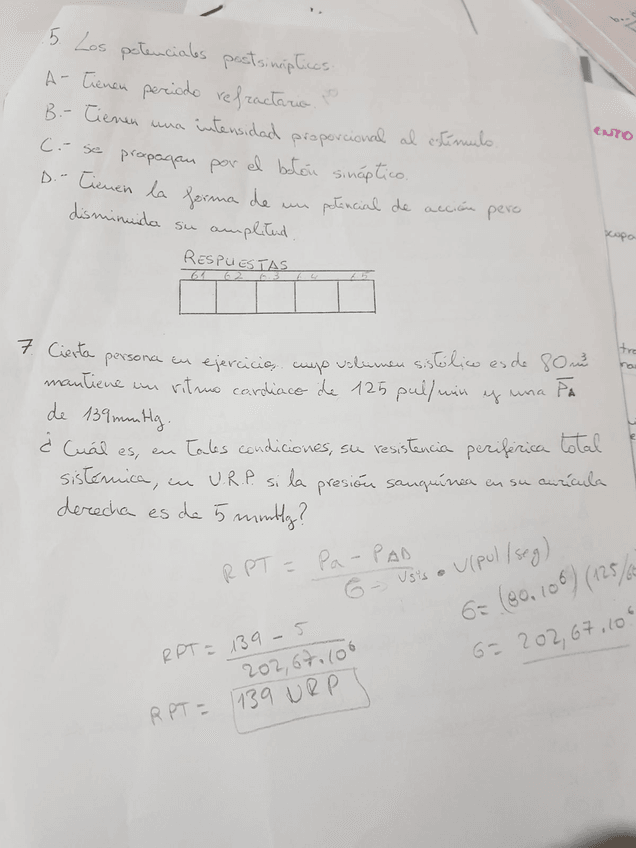 5 Los potenciales postsinápticos.
A- Tienen periodo refractario.
B.- Tienen una intensidad proporcional al estímulo.
C.- se propagan por el botón sináptico.
D.- Tienen la forma de un potencial de acción pero
disminuida su amplitud.
RESPUESTAS
61 62 63 64 65
7 Cierta persona en ejercicio, cuyo volumen sistólico es de 80 m³
mantiene un ritmo cardiaco de 125 pul/min y una P̄A
de 139 mmHg.
¿Cuál es, en tales condiciones, su resistencia periférica total
sistémica, en U.R.P. si la presión sanguínea en su aurícula
derecha es de 5 mmHg?
RPT = Pa - PAD / G → Vsis • V(pul/seg)
G= (80.10⁶) (125/60
RPT = 139 - 5 / 202,67.10⁶
G= 202,67.10⁶
RPT = 139 URP
ENTO